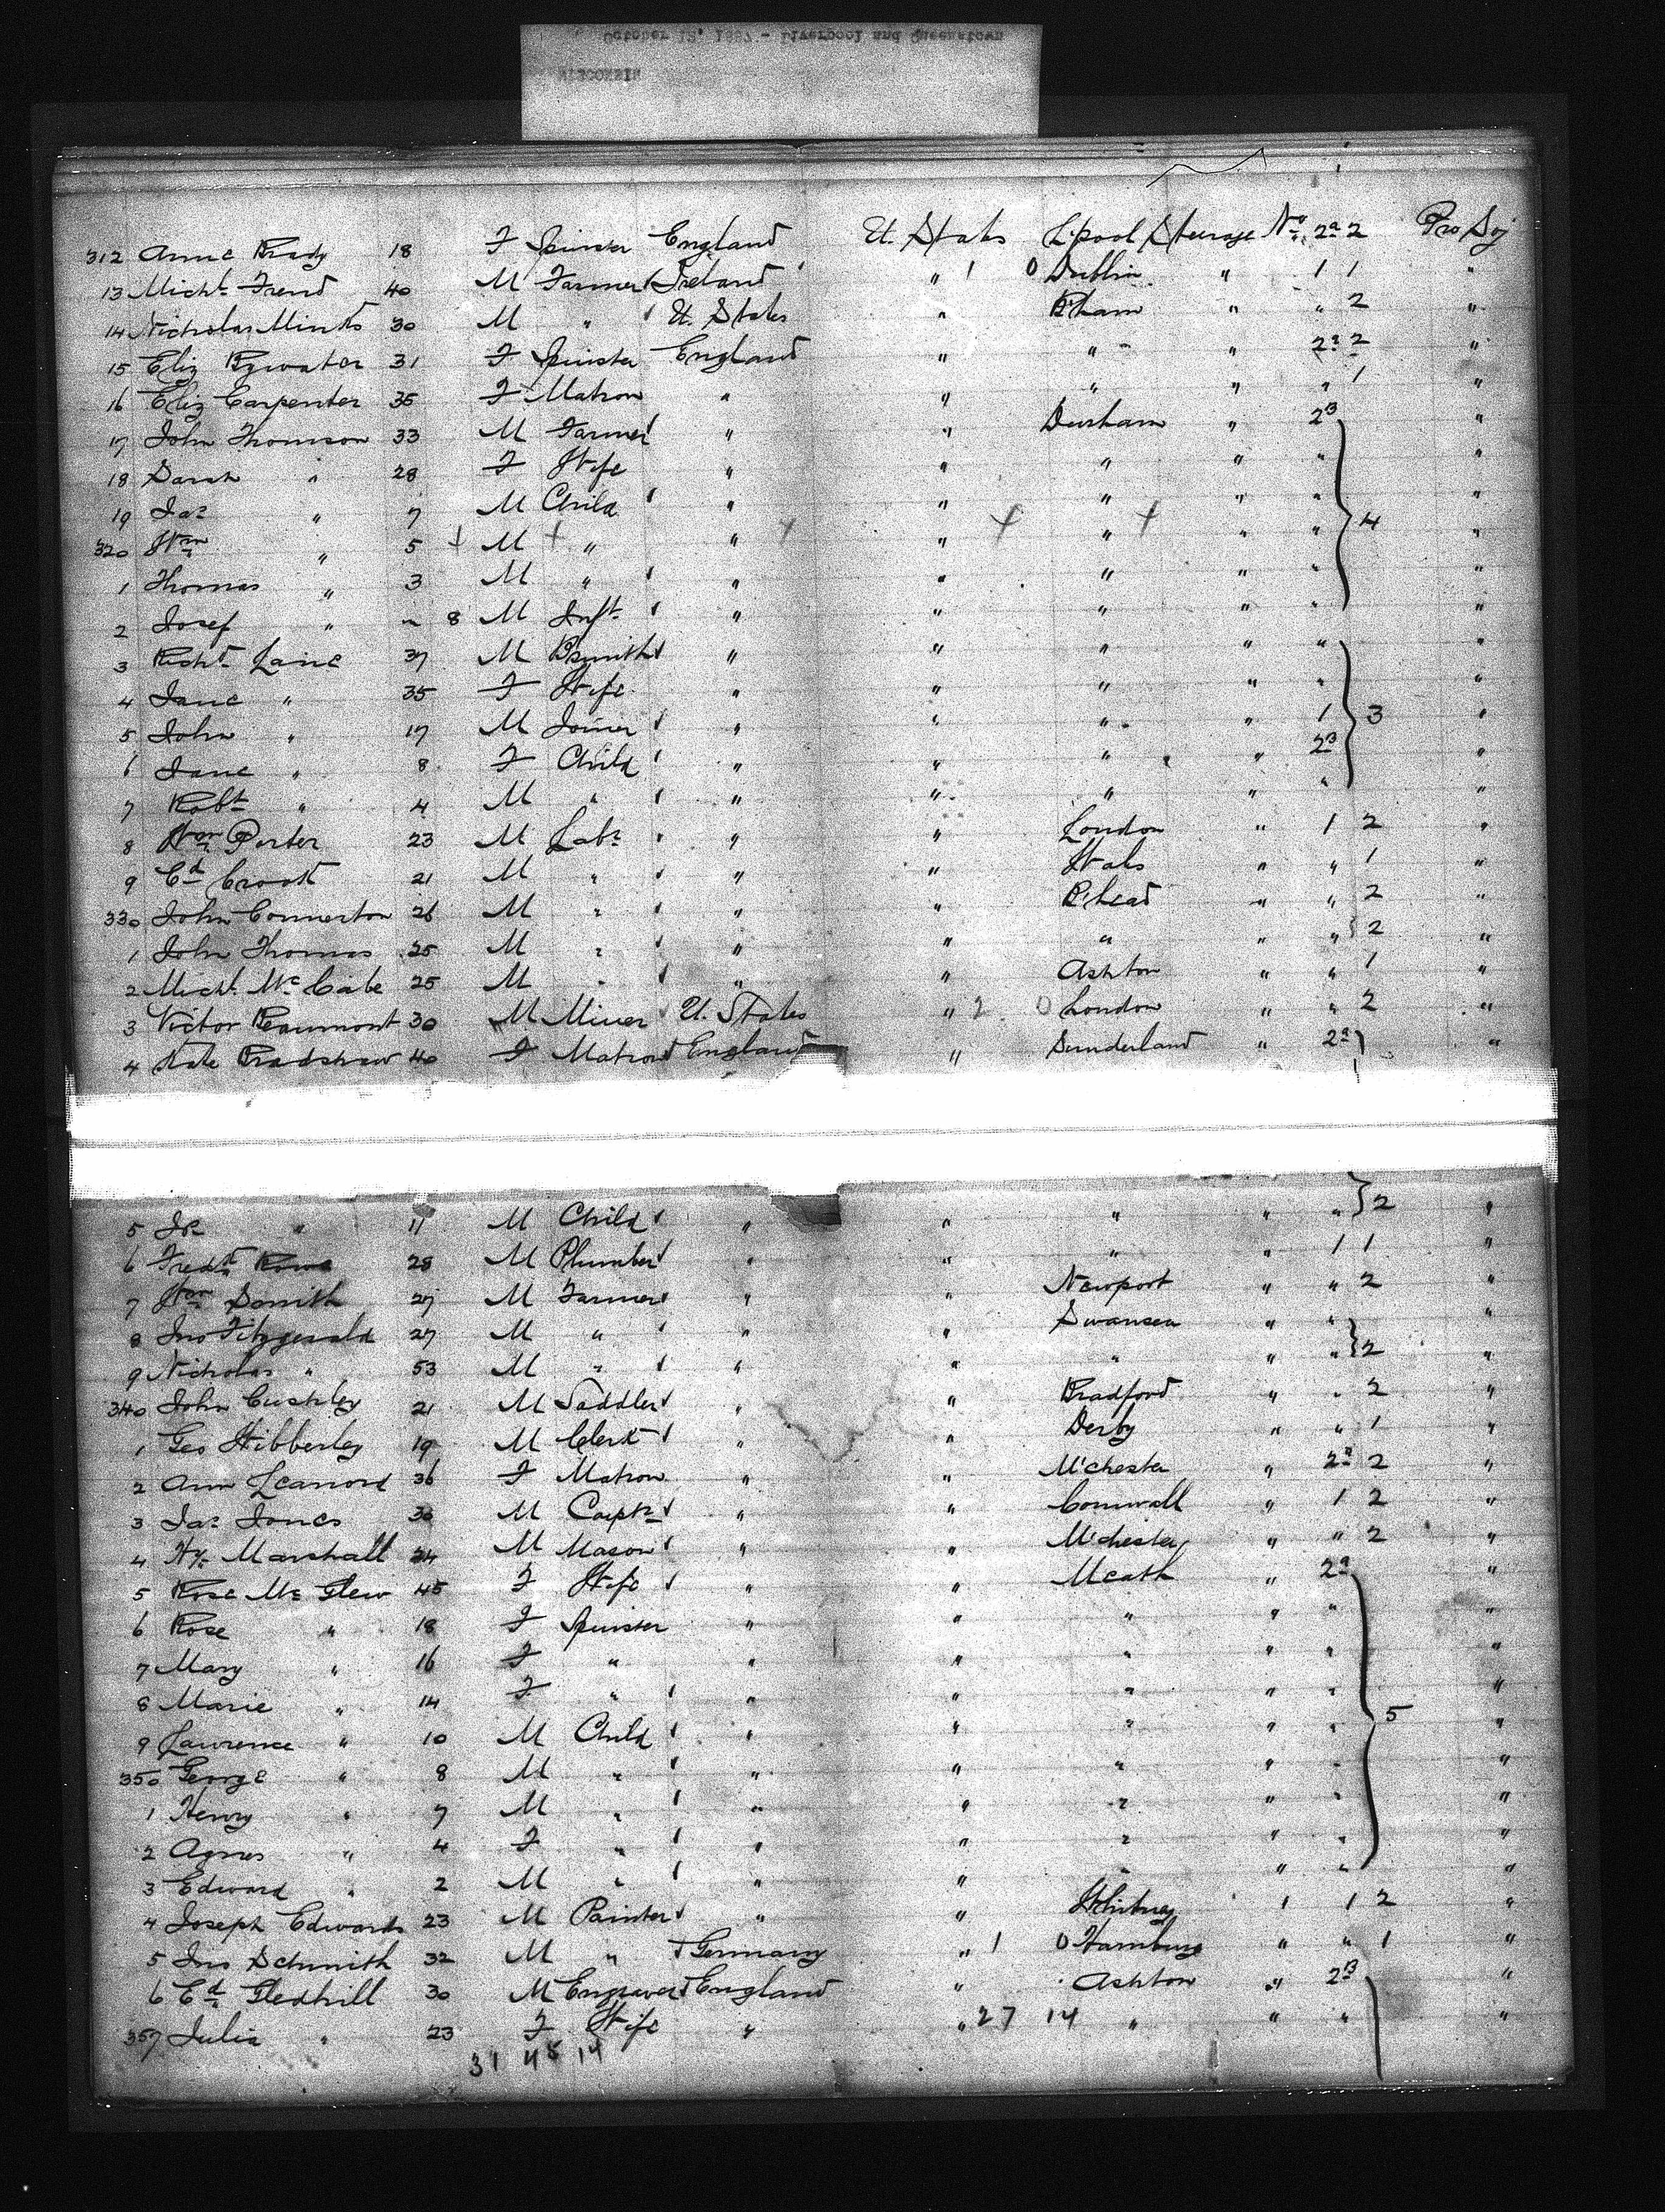 October 12, 1887 - Liverpool and Queenstown
WISCONSIN
312 Annie Brady 18 F Spinster England U. States L'pool Steerage No. 2a 2 Pro Soj
13 Michl Trend 40 M Farmer Ireland " 1 0 Dublin " 1 1 "
14 Nicholas Minks 30 M " U. States " B'ham " " 2 "
15 Eliz Bywater 31 F Spinster England " " " 2a 2 "
16 Eliz Carpenter 35 F Matron " " " " " 1 "
17 John Thomson 33 M Farmer " " Durham " 2B "
18 Sarah " 28 F Wife " " " " " "
19 Jas " 7 M Child " " " " " "
320 Wm " 5 M " " " " " " 4 "
1 Thomas " 3 M " " " " " " "
2 Josef " " 8 M Inft " " " " " "
3 Richd Laine 37 M Bsmith " " " " " "
4 Jane " 35 F Wife " " " " " "
5 John " 17 M Joiner " " " " 1 3 "
6 Jane " 8 F Child " " " " 2B "
7 Robt " 4 M " " " " " " "
8 Wm Porter 23 M Labr " " London " 1 2 "
9 Ed Crook 21 M " " " Wales " " 1 "
330 John Connerton 26 M " " " B'head " " 2 "
1 John Thomas 25 M " " " " " " 2 "
2 Michl McCabe 25 M " " " Ashton " " 1 "
3 Victor Beaumont 30 M Miner U. States " 2 0 London " " 2 "
4 Kate Bradshaw 40 F Matron England " Sunderland " 2a "
5 Js " 11 M Child " " " " " 2 "
6 Fredk Rowe 28 M Plumber " " " " 1 1 "
7 Wm Smith 27 M Farmer " " Newport " " 2 "
8 Jno Fitzgerald 27 M " " " Swansea " " "
9 Nicholas " 53 M " " " " " " 2 "
340 John Cushley 21 M Saddler " " Bradford " " 2 "
1 Geo Hibberley 19 M Clerk " " Derby " " 1 "
2 Ann Leanord 36 F Matron " " M'chester " 2a 2 "
3 Jas Jones 30 M Carpt " " Cornwall " 1 2 "
4 Hy Marshall 24 M Mason " " M'chester " " 2 "
5 Rose Mc Glew 45 F Wife " " Meath " 2a "
6 Rose " 18 F Spinster " " " " " "
7 Mary " 16 F " " " " " " "
8 Marie " 14 F " " " " " " "
9 Lawrence " 10 M Child " " " " " 5 "
350 George " 8 M " " " " " " "
1 Henry " 7 M " " " " " " "
2 Agnes " 4 F " " " " " " "
3 Edward " 2 M " " " " " " "
4 Joseph Edwards 23 M Painter " " 1 1 2 "
5 Jno Schmith 32 M " Germany " 1 0 Hamburg " " 1 "
6 Ed Gledhill 30 M Engraver England " Ashton " 2B "
357 Julia " 23 F Wife " " 27 14 " " " "
31 45 14